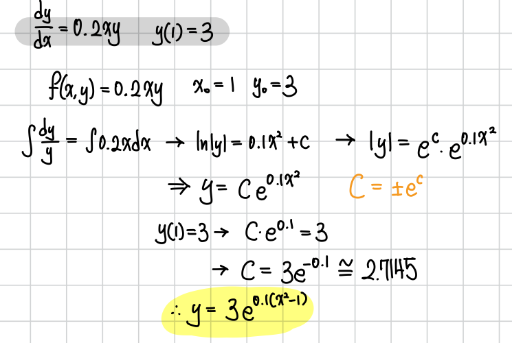 dy/dx = 0.2xy   y(1) = 3
f(x,y) = 0.2xy   x₀ = 1   y₀ = 3
∫ dy/y = ∫0.2xdx → ln|y| = 0.1x² + C → |y| = e^c · e^0.1x²
⇒ y = C e^0.1x²   C = ±e^c
y(1) = 3 → C · e^0.1 = 3
→ C = 3e^-0.1 ≅ 2.7145
∴ y = 3e^0.1(x²-1)